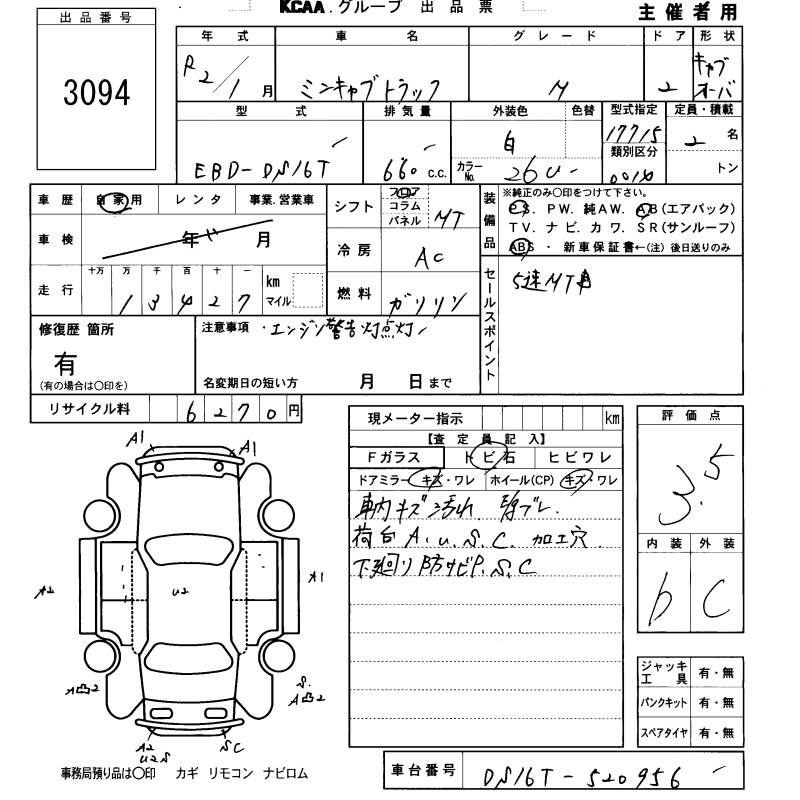 KCAA.グループ 出品票
主催者用
出品番号
3094
年式 車名 グレード ドア 形状
R2/1月 ミニキャブトラック M 2 キャブオーバ
型式 排気量 外装色 色替 型式指定 定員・積載
EBD-DS16T 660 c.c. 白 カラーNo. 26U 17715 2名
類別区分
0014 トン
車歴 自家用 レンタ 事業.営業車
シフト フロア コラム パネル MT
装備品 ※純正のみ〇印をつけて下さい。
P.S. P.W. 純A.W. A.B(エアバック)
T.V. ナビ. カワ. S.R(サンルーフ)
ABS ・ 新車保証書←(注) 後日送りのみ
車検 年 月
冷房 AC
走行 十万 万 千 百 十 一 km マイル
13427
燃料 ガソリン
セールスポイント
5速MT車
修復歴 箇所
有
(有の場合は〇印を)
注意事項 ・エンジン警告灯点灯
名変期日の短い方 月 日まで
リサイクル料 6270円
現メーター指示 km
【査定員記入】
Fガラス トビ石 ヒビワレ
ドアミラー キズ・ワレ ホイール(CP) キズ・ワレ
車内キズ汚れ
荷台 A.U.S.C. 加工穴
下廻り防サビP.S.C
評価点
3.5
内装 外装
b C
ジャッキ工具 有・無
パンクキット 有・無
スペアタイヤ 有・無
A1 A1
A2 U2 A1
A凸2 S. A凸2
A2 U2S SC
事務局預り品は〇印 カギ リモコン ナビロム
車台番号 DS16T-520956